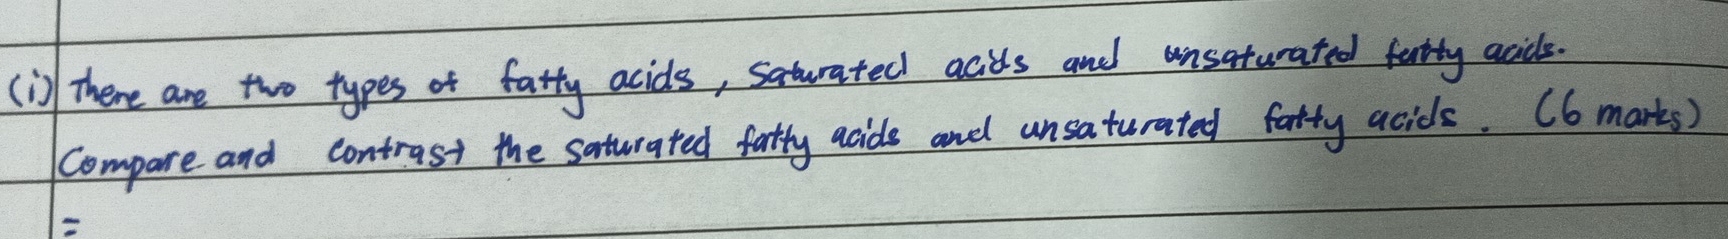 (i) There are two types of fatty acids, saturated acids and unsaturated fatty acids.
Compare and contrast the saturated fatty acids and unsaturated fatty acids. (6 marks)
=